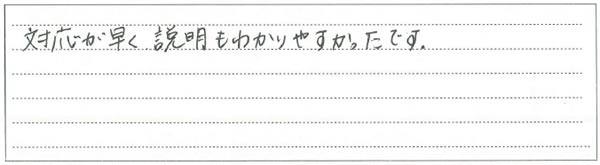 対応が早く 説明もわかりやすかったです.